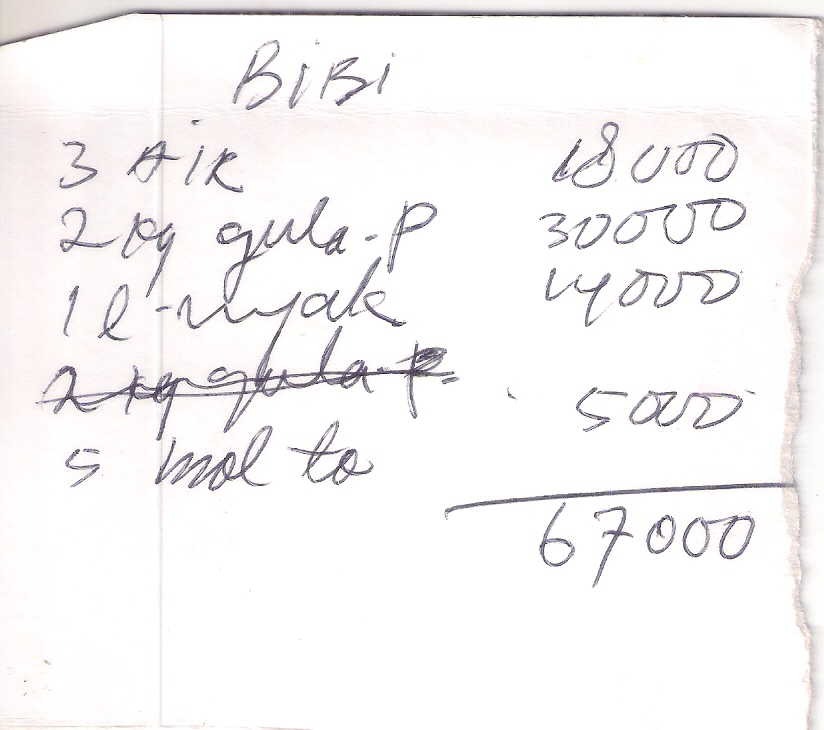 BiBi
3 Air 18000
2 kg gula-p 30000
1 l-nyak 14000
2 kg gula-p. 5000
5 mol to
67000